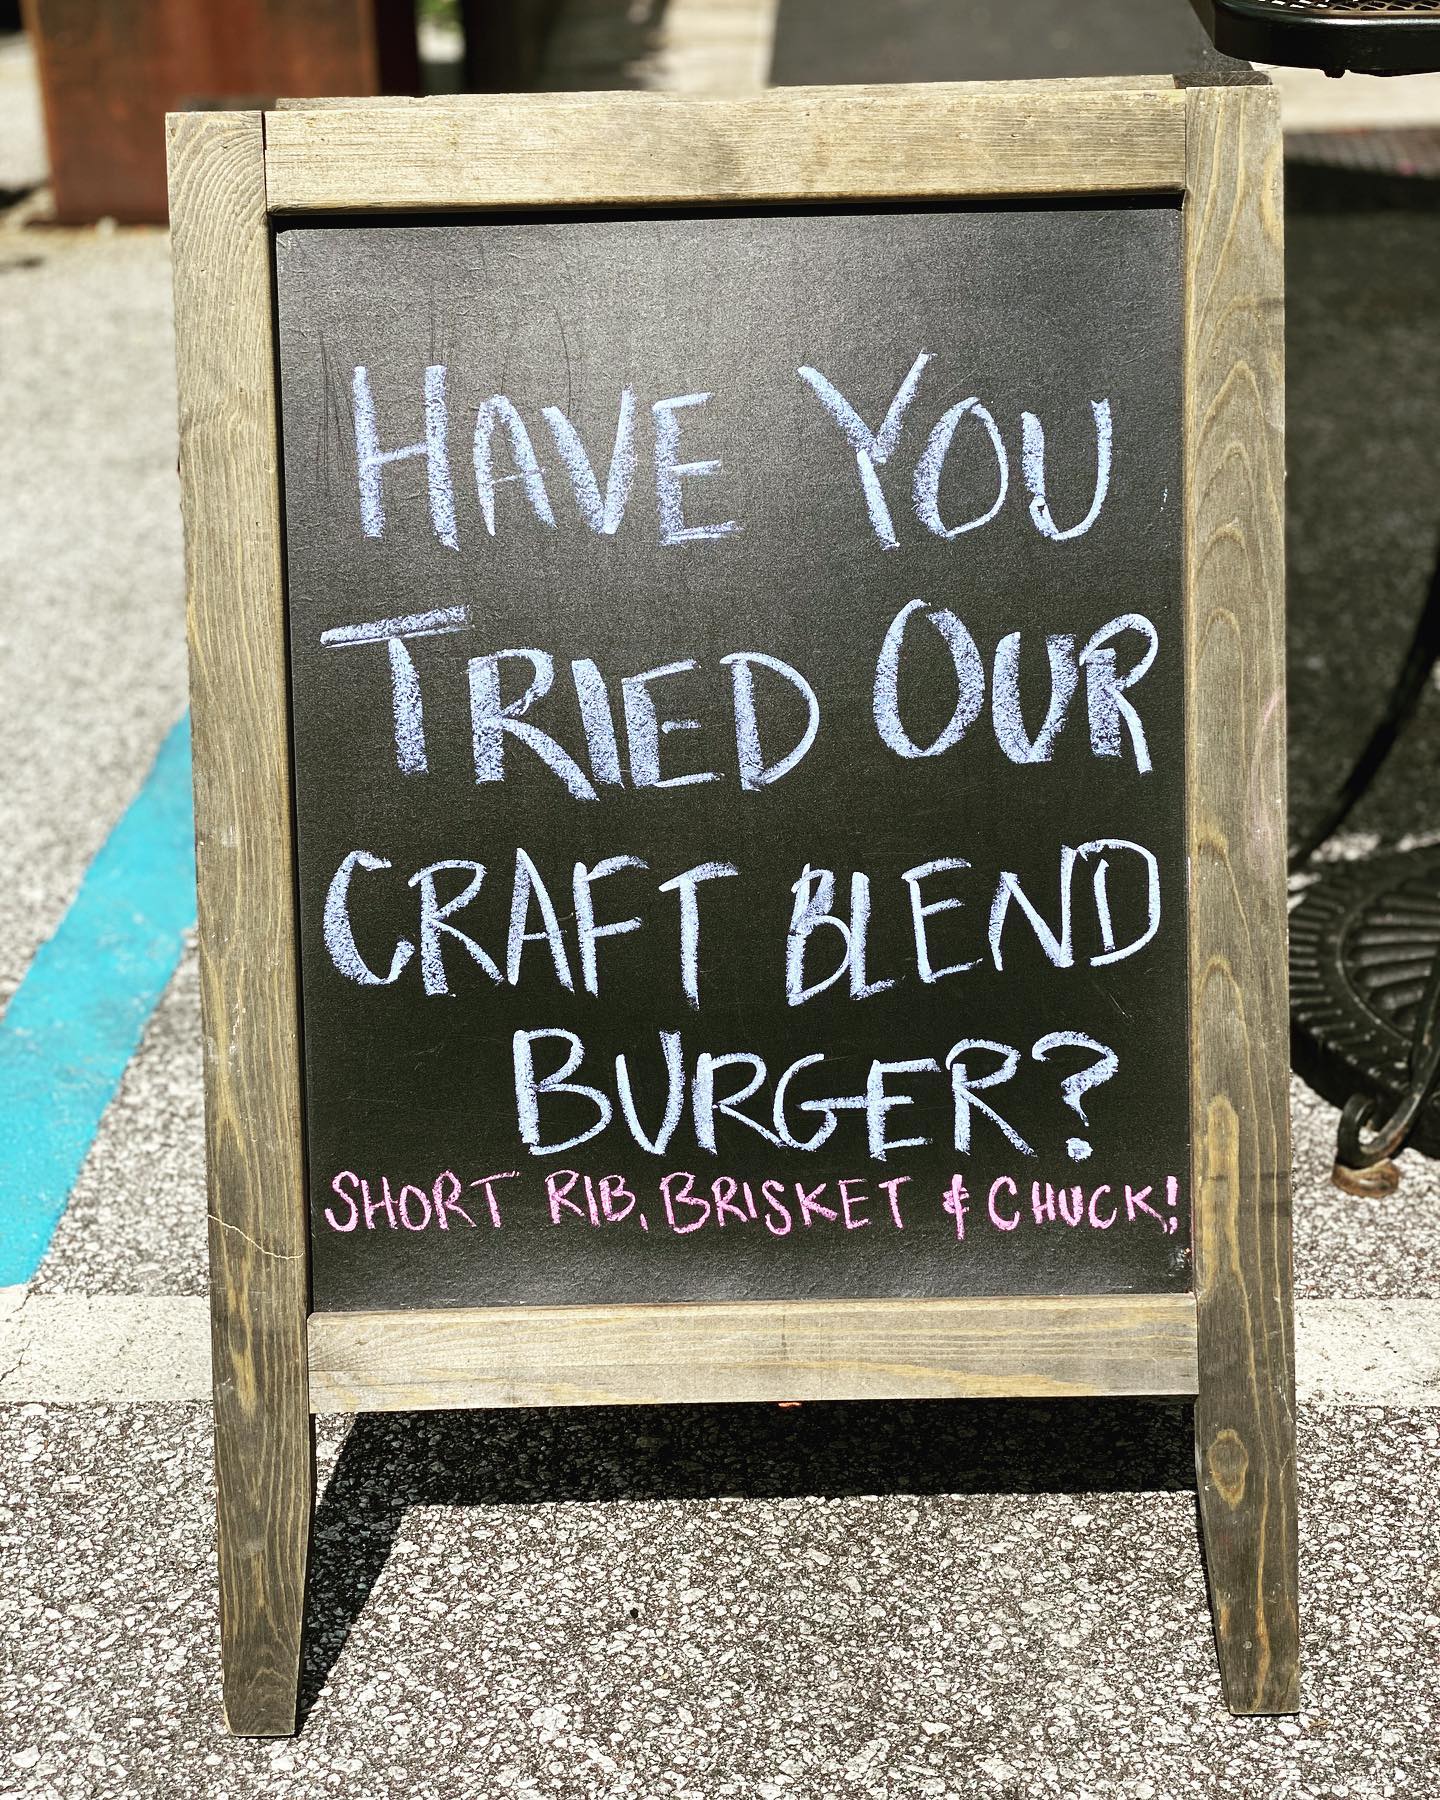 HAVE YOU
TRIED OUR
CRAFT BLEND
BURGER?
SHORT RIB, BRISKET & CHUCK!